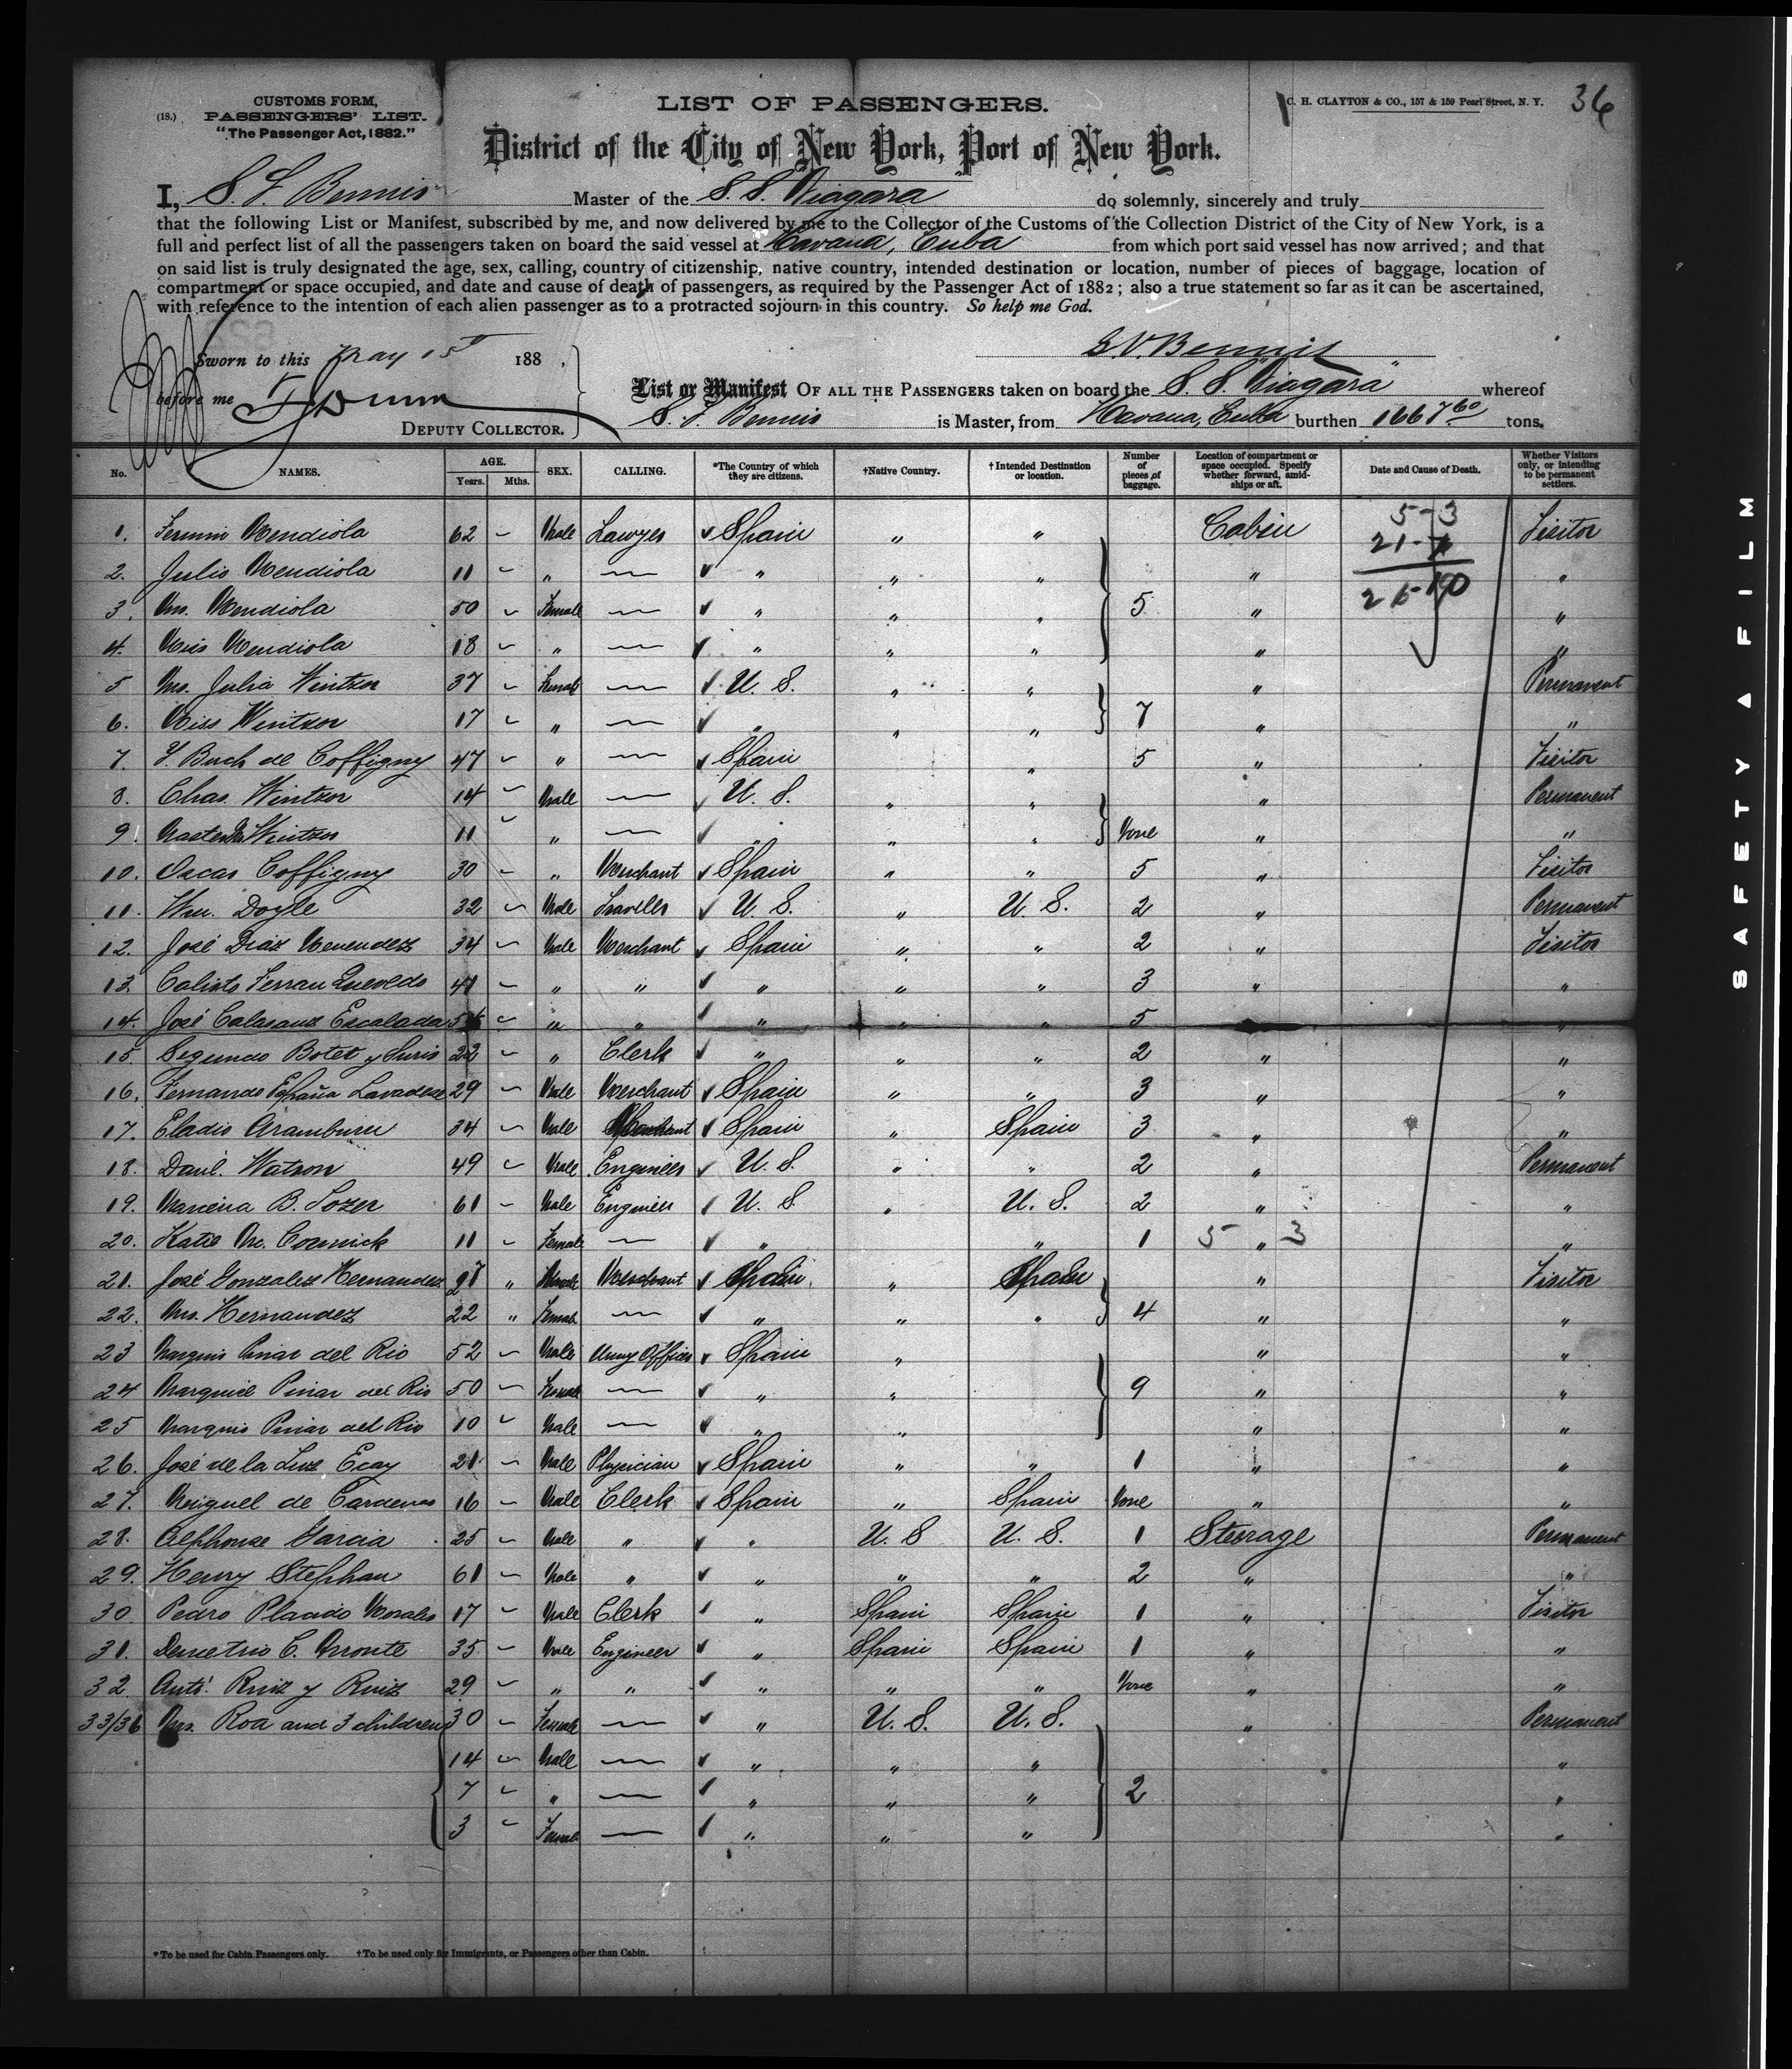 36
(18.)
CUSTOMS FORM,
PASSENGERS' LIST.
"The Passenger Act, 1882."
LIST OF PASSENGERS.
C. H. CLAYTON & CO., 157 & 159 Pearl Street, N. Y.
District of the City of New York, Port of New York.
I, Bennis Master of the S. S. Niagara do solemnly, sincerely and truly
that the following List or Manifest, subscribed by me, and now delivered by me to the Collector of the Customs of the Collection District of the City of New York, is a
full and perfect list of all the passengers taken on board the said vessel at Havana, Cuba from which port said vessel has now arrived; and that
on said list is truly designated the age, sex, calling, country of citizenship, native country, intended destination or location, number of pieces of baggage, location of
compartment or space occupied, and date and cause of death of passengers, as required by the Passenger Act of 1882; also a true statement so far as it can be ascertained,
with reference to the intention of each alien passenger as to a protracted sojourn in this country. So help me God.
Sworn to this May 15 188 ,
Bennis
before me
DEPUTY COLLECTOR.
List or Manifest OF ALL THE PASSENGERS taken on board the S. S. "Niagara" whereof
Bennis is Master, from Havana, Cuba burthen 1667 60 tons.
No. NAMES. AGE. Years. Mths. SEX. CALLING. *The Country of which they are citizens. †Native Country. †Intended Destination or location. Number of pieces of baggage. Location of compartment or space occupied. Specify whether forward, amidships or aft. Date and Cause of Death. Whether Visitors only, or intending to be permanent settlers.
1. Fermin Mendiola 62 – Male Lawyer ✓ Spain " " Cabin 5-3 Visitor
2. Julio Mendiola 11 – " — ✓ " " " " 21- "
3. Mrs. Mendiola 50 – Female — ✓ " " " 5 " "
4. Miss Mendiola 18 – " — ✓ " " " " "
5 Mrs. Julia Wintzer 37 – Female — ✓ U. S. " " " Permanent
6. Miss Wintzer 17 – " — ✓ " " " 7 " "
7. Y. Buch de Coffigny 47 – " — ✓ Spain " 5 " Visitor
8. Chas. Wintzer 14 – Male — ✓ U. S. " " " Permanent
9. Master Wintzer 11 – " — ✓ " " " None " "
10. Oscar Coffigny 30 – " Merchant ✓ Spain " " 5 " Visitor
11. Wm. Doyle 32 – Male Traveller ✓ U. S. " U. S. 2 " Permanent
12. José Diaz Menendez 34 – Male Merchant ✓ Spain " " 2 " Visitor
13. Calisto Ferran Quevedo 41 – " " ✓ " " " 3 " "
14. José Calasanz Escalada – " " ✓ " " " 5 " "
15. Segundo Botet y 22 – " Clerk ✓ " " " 2 " "
16. Fernando España 29 – Male Merchant ✓ Spain " " 3 " "
17. Eladio Aramburu 34 – Male Merchant ✓ Spain " Spain 3 " "
18. Danl. Watson 49 – Male Engineer ✓ U. S. " " 2 " Permanent
19. B. Tozer 61 – Male Engineer ✓ U. S. " U. S. 2 " "
20. Katie Mc. Cormick 11 – Female — ✓ " " 1 5 " 3 "
21. José Gonzalez Hernandez 27 " Male Merchant ✓ Spain " Spain " Visitor
22. Mrs. Hernandez 22 " Female — ✓ " " " 4 " "
23 Marquis Pinar del Rio 52 – Male Army Officer ✓ Spain " " "
24 Marquise Pinar del Rio 50 – Female — ✓ " " 9 " "
25 Marquis Pinar del Rio 10 – Male — ✓ " " " "
26. José de la Luz Ecay 21 – Male Physician ✓ Spain " " 1 " "
27. Miguel de Cardenas 16 – Male Clerk ✓ Spain " Spain None " "
28. Alphonse Garcia 25 – Male " ✓ " U. S U. S. 1 Steerage Permanent
29. Henry Stephan 61 – Male " ✓ " " " 2 " "
30. Pedro Placido Morales 17 – Male Clerk ✓ " Spain Spain 1 " Visitor
31. Demetrio C. 35 – Male Engineer ✓ " Spain Spain 1 " "
32. Anto. Ruiz y Ruiz 29 – " " ✓ " " " None " "
33/36 Mrs. Roa and 3 children 30 – Female — ✓ " U. S. U. S. " Permanent
14 – Male — ✓ " " " "
7 – " — ✓ " " " 2 "
3 – Female — ✓ " " " "
*To be used for Cabin Passengers only. †To be used only for Immigrants, or Passengers other than Cabin.
SAFETY ▲ FILM